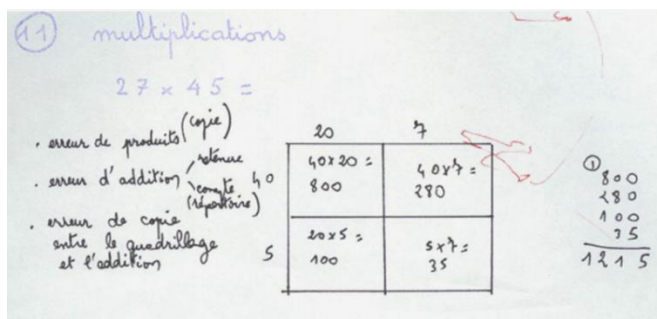 11 multiplications
27 × 45 =
. erreur de produits (copie)
. erreur d'addition retenue
compte
(répertoire)
. erreur de copie
entre le quadrillage
et l'addition
20 7
40 40×20 = 40×7=
800 280
5 20×5 = 5×7=
100 35
1
800
280
100
35
1215